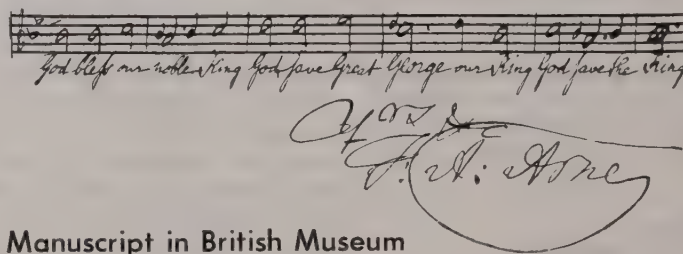 God bless our noble King God save Great George our King God save the King
T. A: Arne
Manuscript in British Museum